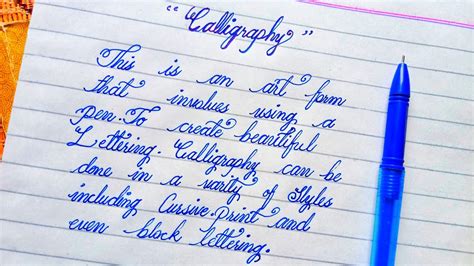 "Calligraphy"
This is an art form
that involves using a
Pen. To create beautiful
Lettering. Calligraphy can be
done in a varity of Styles
including Cursive. Print and
even block lettering.